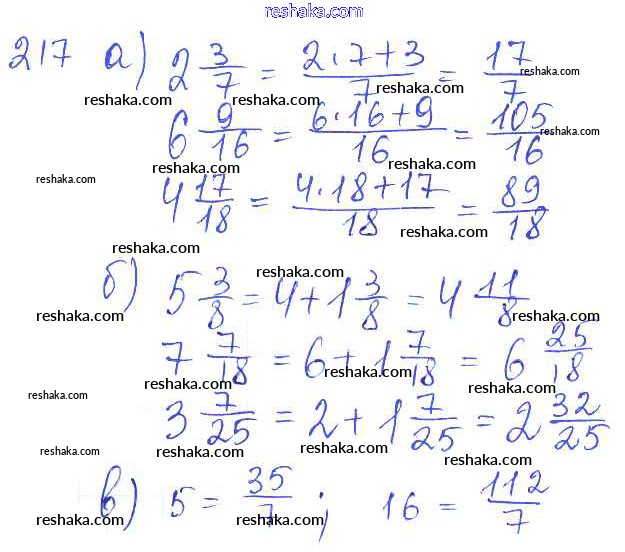 reshaka.com
217 а) 2 3/7 = (2·7+3)/7 = 17/7
reshaka.com reshaka.com reshaka.com
6 9/16 = (6·16+9)/16 = 105/16
reshaka.com reshaka.com reshaka.com
reshaka.com
4 17/18 = (4·18+17)/18 = 89/18
reshaka.com reshaka.com
б) 5 3/8 = 4+1 3/8 = 4 11/8
reshaka.com
reshaka.com reshaka.com reshaka.com
7 7/18 = 6+1 7/18 = 6 25/18
reshaka.com reshaka.com reshaka.com
3 7/25 = 2+1 7/25 = 2 32/25
reshaka.com reshaka.com reshaka.com
в) 5 = 35/7 ; 16 = 112/7
reshaka.com reshaka.com reshaka.com